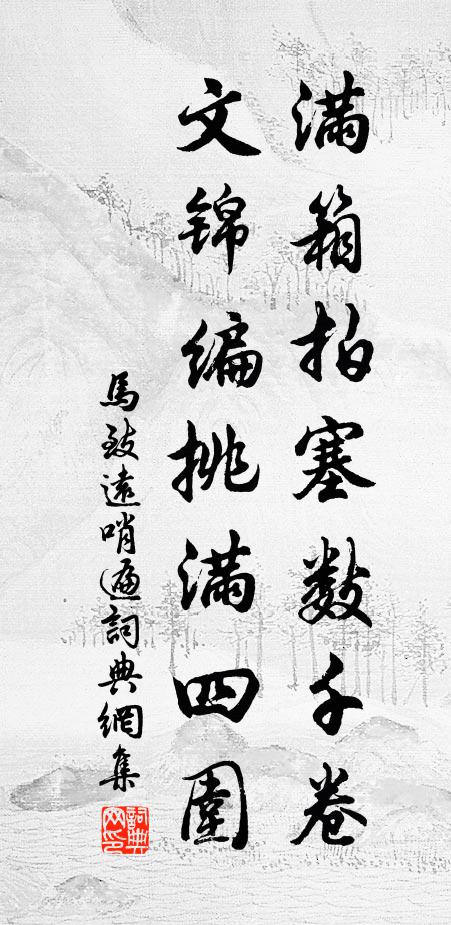 满箱拍塞数千卷
文锦编挑满四圍
馬致遠哨遍詞典網集
詞典网印